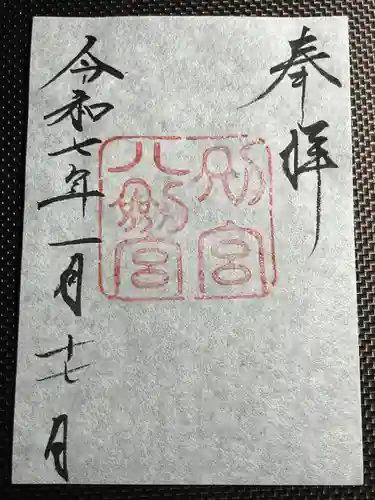 奉拝
別宮
八剱宮
令和七年一月十七日